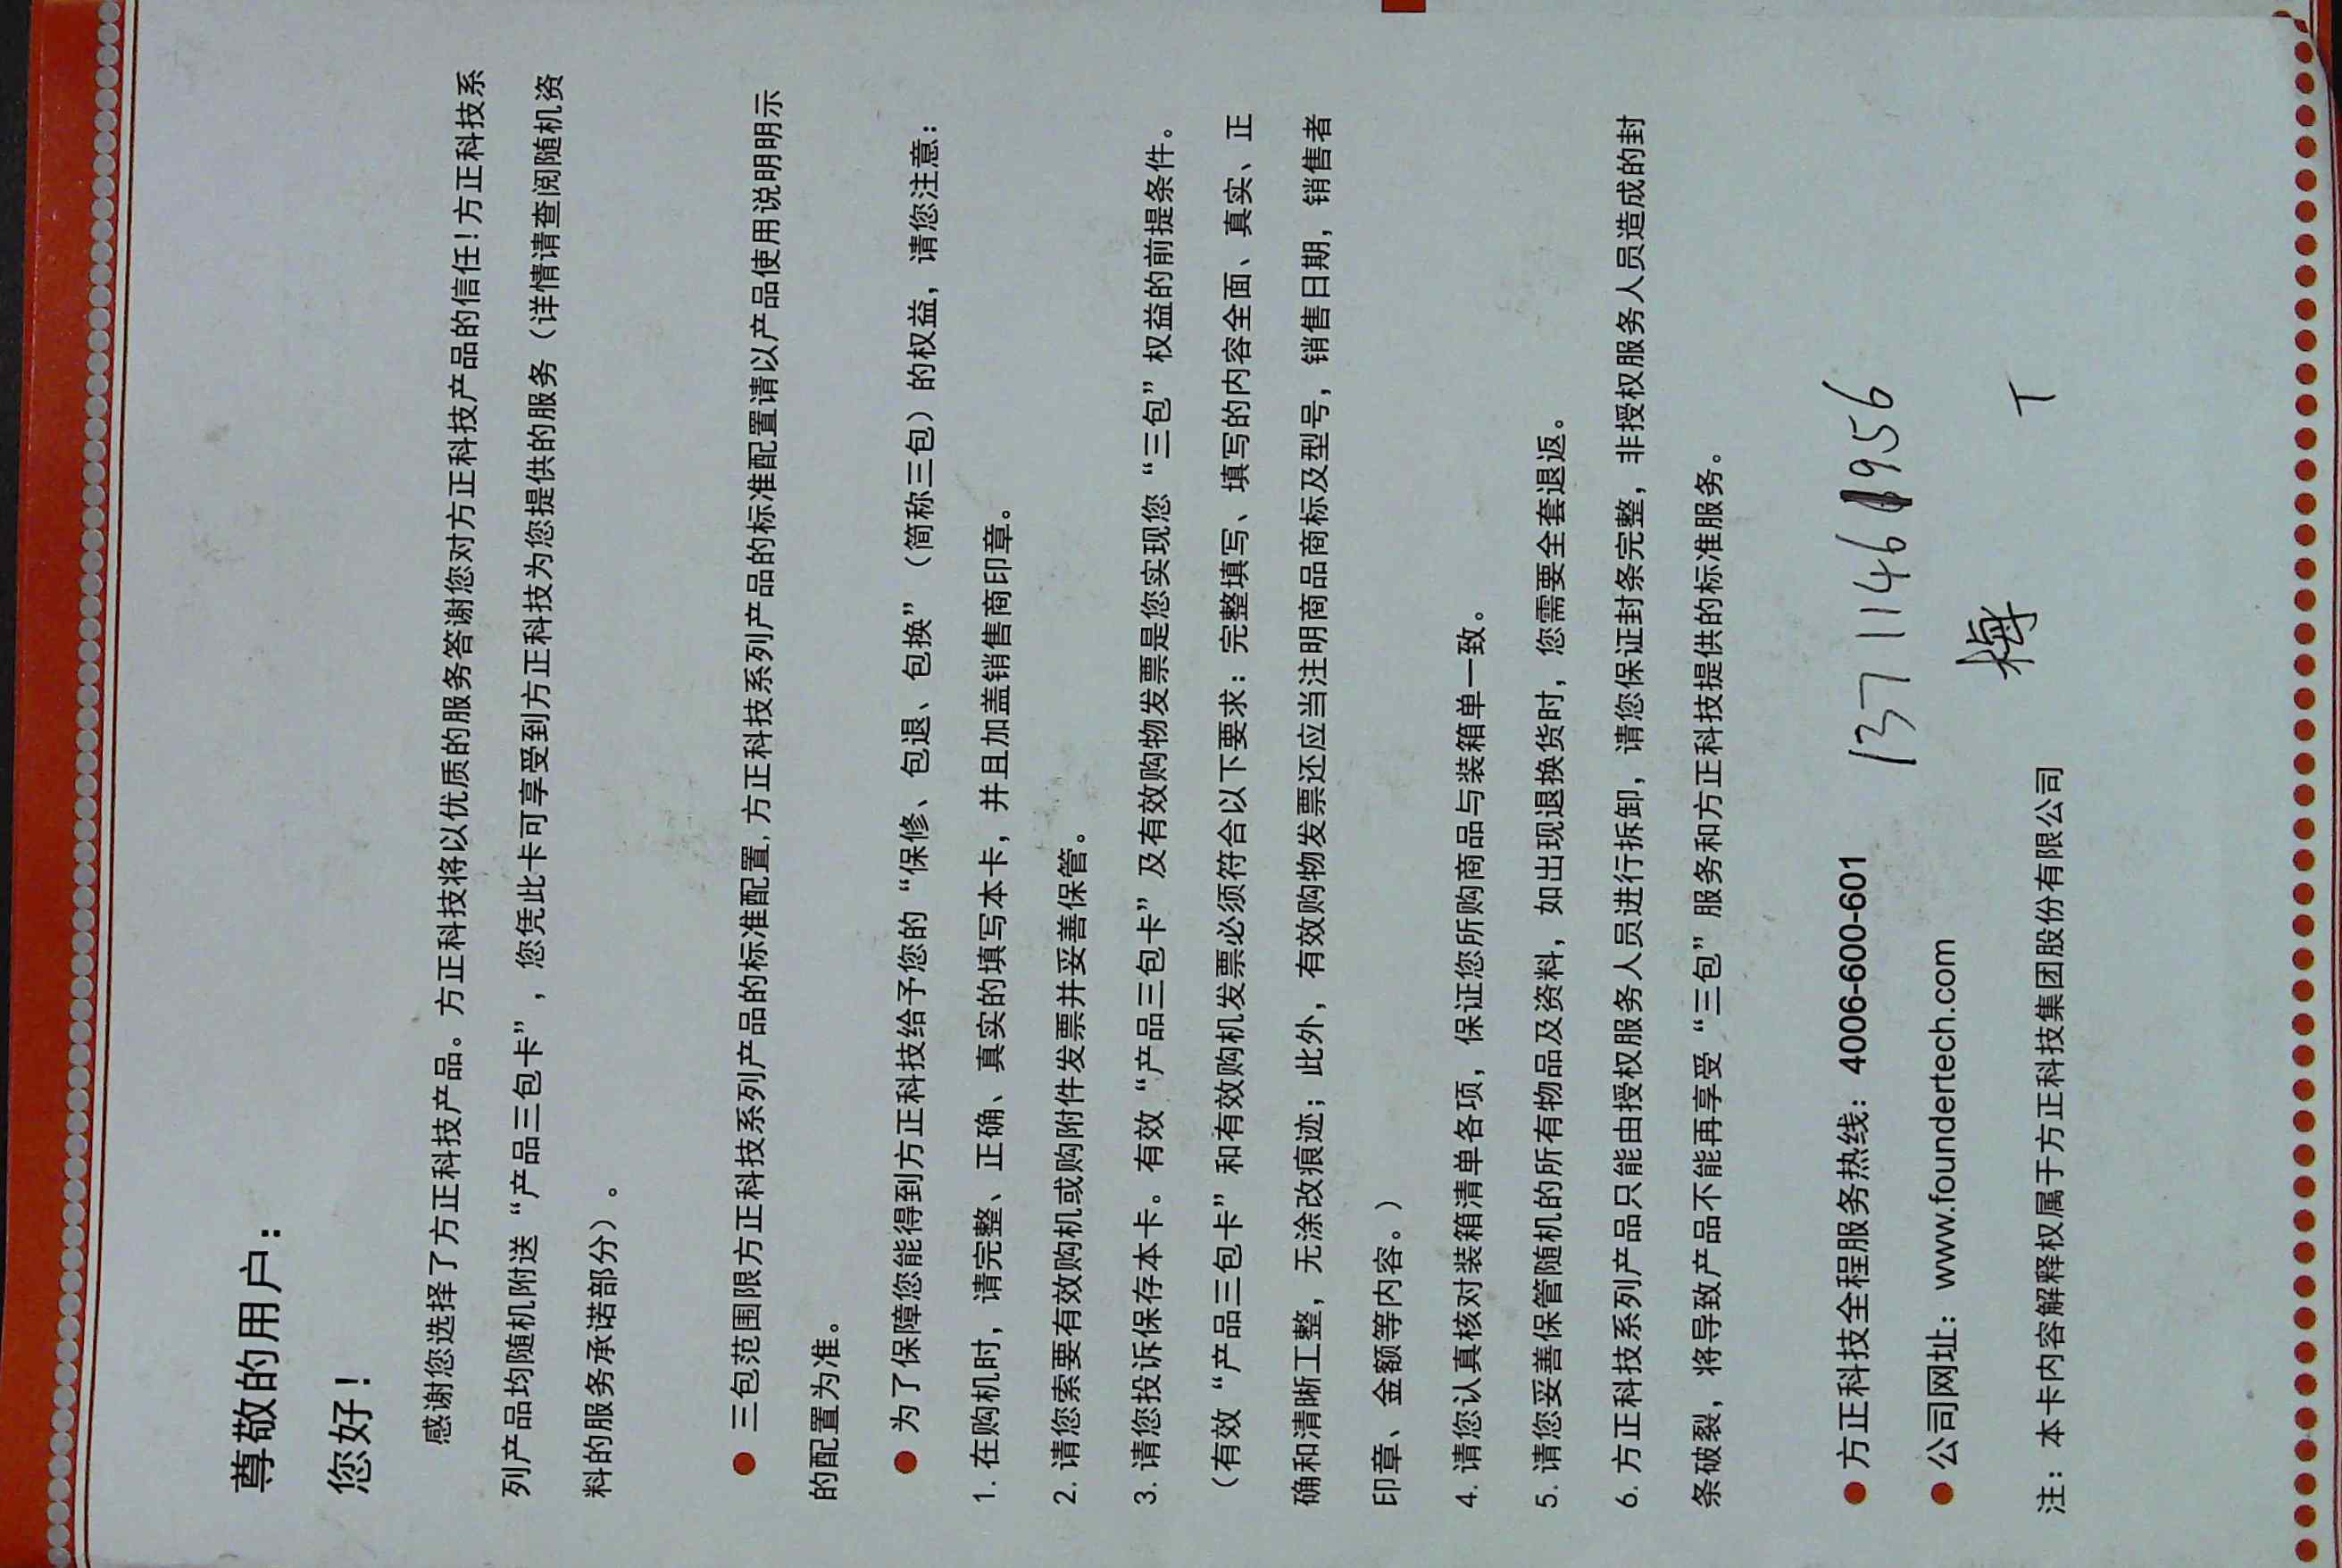 尊敬的用户：
您好！
感谢您选择了方正科技产品。方正科技将以优质的服务答谢您对方正科技产品的信任！方正科技系
列产品均随机附送“产品三包卡”，您凭此卡可享受到方正科技为您提供的服务（详情请查阅随机资
料的服务承诺部分）。
● 三包范围限方正科技系列产品的标准配置,方正科技系列产品的标准配置请以产品使用说明明示
的配置为准。
● 为了保障您能得到方正科技给予您的“保修、包退、包换”（简称三包）的权益，请您注意：
1. 在购机时，请完整、正确、真实的填写本卡，并且加盖销售商印章。
2. 请您索要有效购机或购附件发票并妥善保管。
3. 请您投诉保存本卡。有效“产品三包卡”及有效购物发票是您实现您“三包”权益的前提条件。
（有效“产品三包卡”和有效购机发票必须符合以下要求：完整填写、填写的内容全面、真实、正
确和清晰工整，无涂改痕迹；此外，有效购物发票还应当注明商品商标及型号，销售日期，销售者
印章、金额等内容。）
4. 请您认真核对装箱清单各项，保证您所购商品与装箱单一致。
5. 请您妥善保管随机的所有物品及资料，如出现退换货时，您需要全套退返。
6. 方正科技系列产品只能由授权服务人员进行拆卸，请您保证封条完整，非授权服务人员造成的封
条破裂，将导致产品不能再享受“三包”服务和方正科技提供的标准服务。
● 方正科技全程服务热线：4006-600-601
13711461956
● 公司网址：www.foundertech.com
梅
注：本卡内容解释权属于方正科技集团股份有限公司